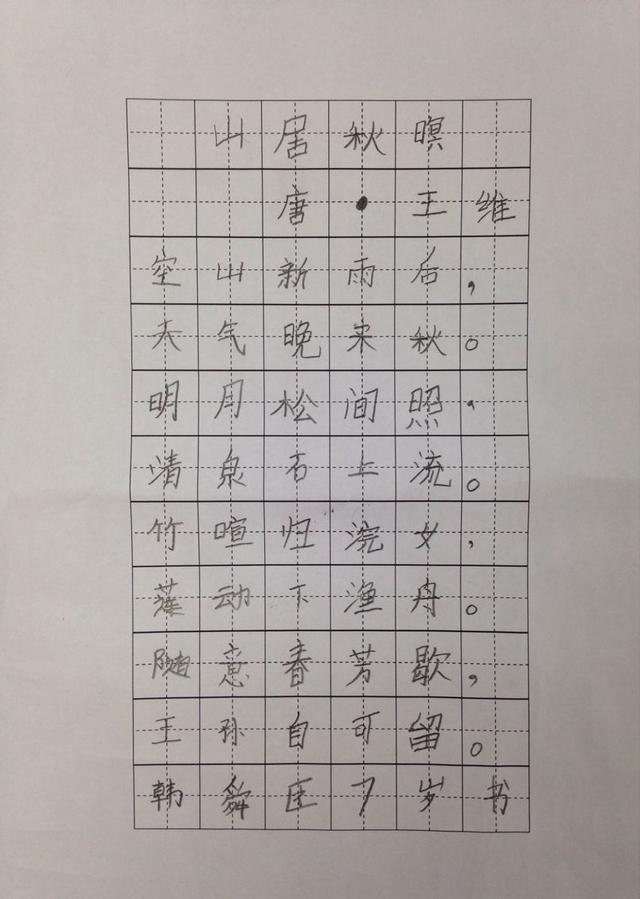 山居秋暝
唐·王维
空山新雨后，
天气晚来秋。
明月松间照，
清泉石上流。
竹喧归浣女，
莲动下渔舟。
随意春芳歇，
王孙自可留。
韩舜匡7岁书